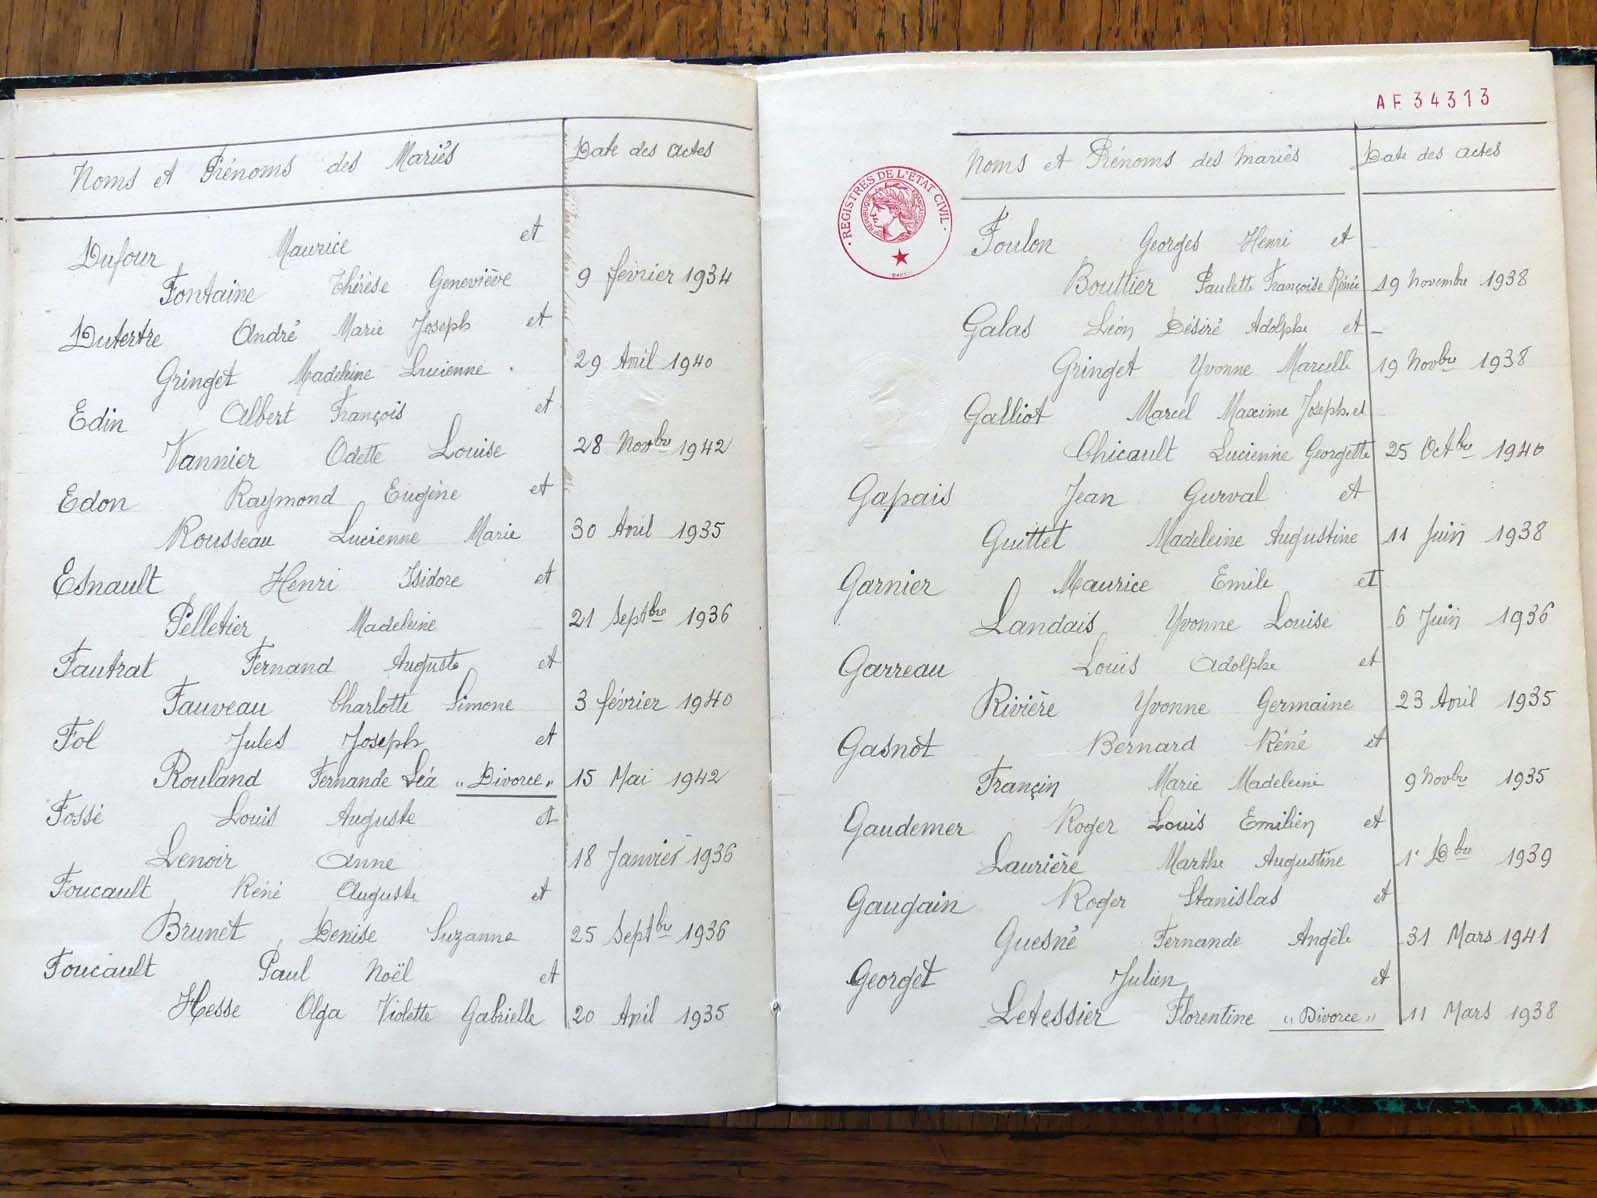 Noms et Prénoms des Mariés Date des actes
Dufour Maurice et
Fontaine Thérèse Geneviève 9 février 1934
Dutertre André Marie Joseph et
Gringet Madeleine Lucienne . 29 Avril 1940
Edin Albert François et
Vannier Odette Louise 28 Novbre 1942
Edon Raymond Eugène et
Rousseau Lucienne Marie 30 Avril 1935
Esnault Henri Isidore et
Pelletier Madeleine 21 Septbre 1936
Fautrat Fernand Auguste et
Fauveau Charlotte Simone 3 février 1940
Fol Jules Joseph et
Rouland Fernande Léa "Divorce" 15 Mai 1942
Fossé Louis Auguste et
Lenoir Anne 18 Janvier 1936
Foucault Réné Auguste et
Brunet Denise Suzanne 25 Septbre 1936
Foucault Paul Noël et
Hesse Olga Violette Gabrielle 20 Avril 1935
AF 34313
REGISTRES DE L'ETAT CIVIL
Noms et Prénoms des mariés Date des actes
Foulon Georges Henri et
Bouttier Paulette Françoise Rénée 19 Novembre 1938
Galas Léon Désiré Adolphe et
Gringet Yvonne Marcelle 19 Novbre 1938
Galliot Marcel Maxime Joseph et
Chicault Lucienne Georgette 25 Octbre 1940
Gapais Jean Gurval et
Guittet Madeleine Augustine 11 Juin 1938
Garnier Maurice Emile et
Landais Yvonne Louise 6 Juin 1936
Garreau Louis Adolphe et
Rivière Yvonne Germaine 23 Avril 1935
Gasnot Bernard Réné et
Françin Marie Madeleine 9 Novbre 1935
Gaudemer Roger Louis Emilien et
Laurière Marthe Augustine 1er Dbre 1939
Gaugain Roger Stanislas et
Guesné Fernande Angèle 31 Mars 1941
Georget Julien et
Letessier Florentine "Divorce" 11 Mars 1938